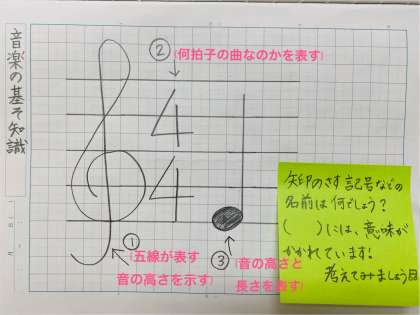 音楽の基そ知識
②
(何拍子の曲なのかを表す)
4
4
①
(五線が表す
音の高さを示す)
③
(音の高さと
長さを表す)
矢印のさす記号などの
名前は何でしょう?
( )には、意味が
かかれています!
考えてみましょう